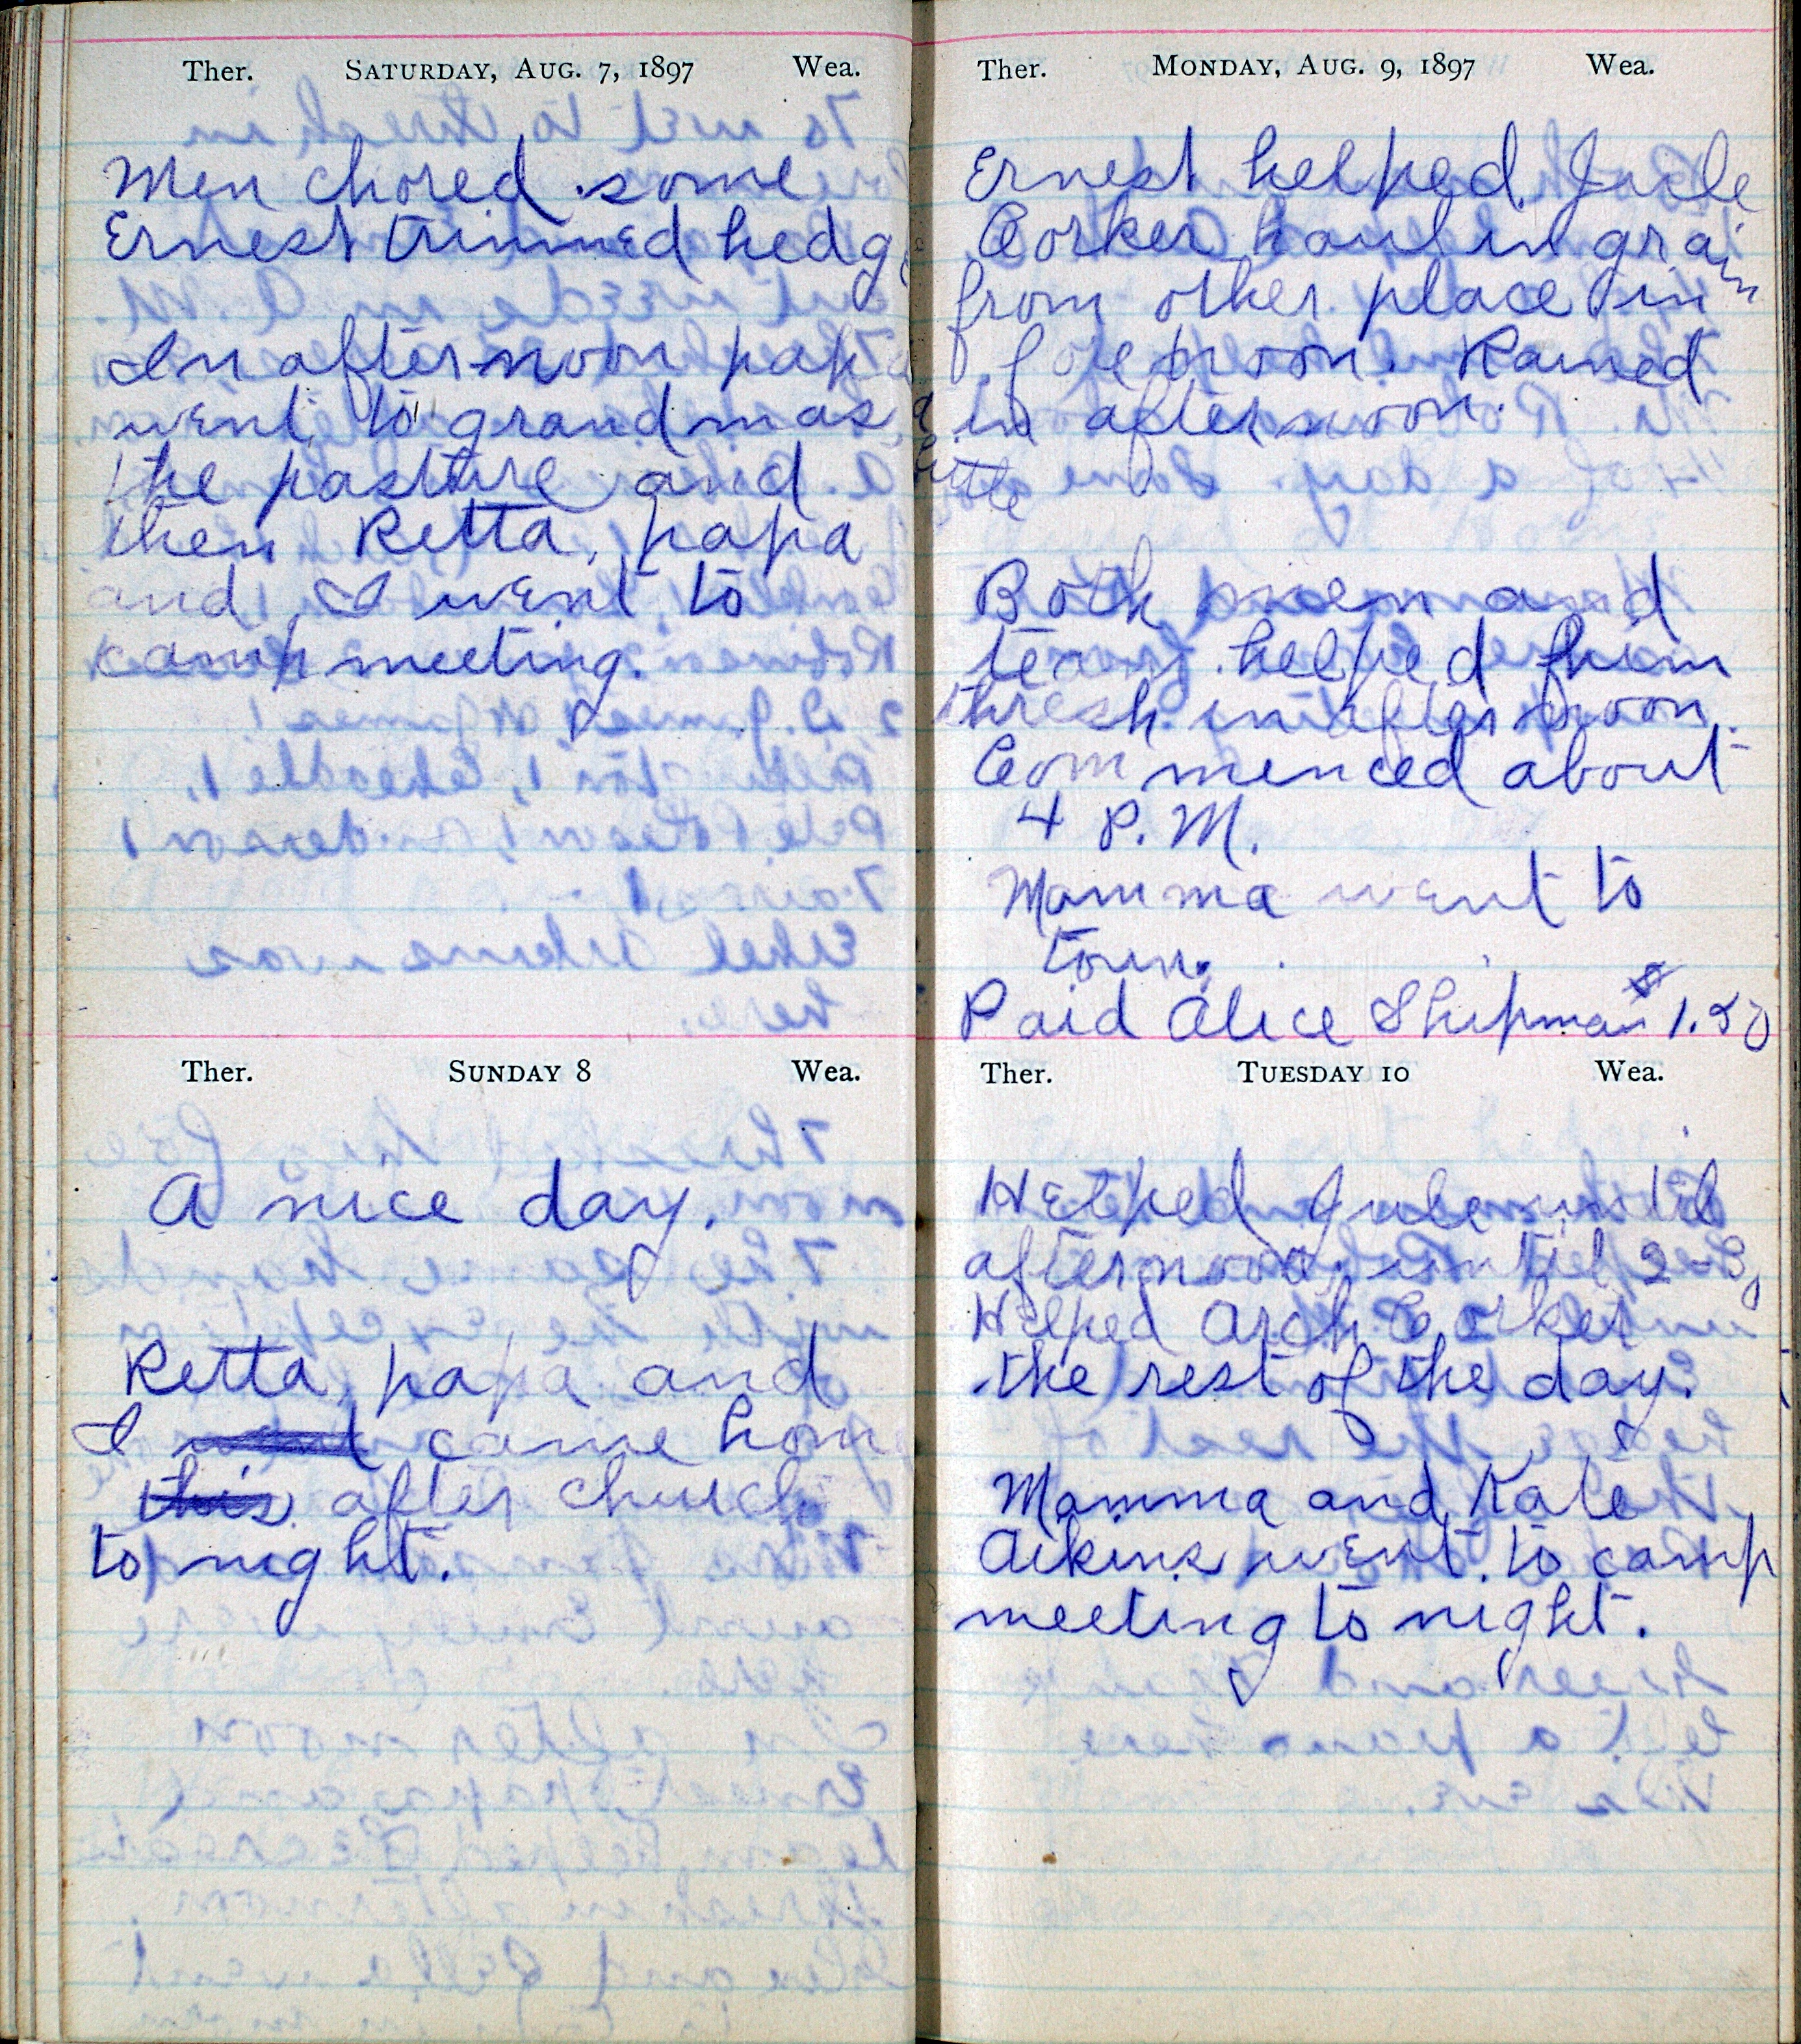 Ther. SATURDAY, AUG. 7, 1897 Wea.
Men chored some
Ernest trimmed hedge
In afternoon papa
went to grandmas,
the pasture and
then Retta, papa
and I went to
camp meeting.
Ther. SUNDAY 8 Wea.
A nice day.
Retta, papa and
I went came home
this after church
to night.
Ther. MONDAY, AUG. 9, 1897 Wea.
Ernest helped Jule
Corker haul in grain
from other place in
forenoon. Rained
a little in afternoon.
Both men and
team helped him
thresh in afternoon.
Commenced about
4 P.M.
Mamma went to
town.
Paid Alice Shipman $1.50
Ther. TUESDAY 10 Wea.
Helped Jule until
afternoon, until 2-3,
Helped Arch Corker
the rest of the day.
Mamma and Kate
Aikins went to camp
meeting to night.